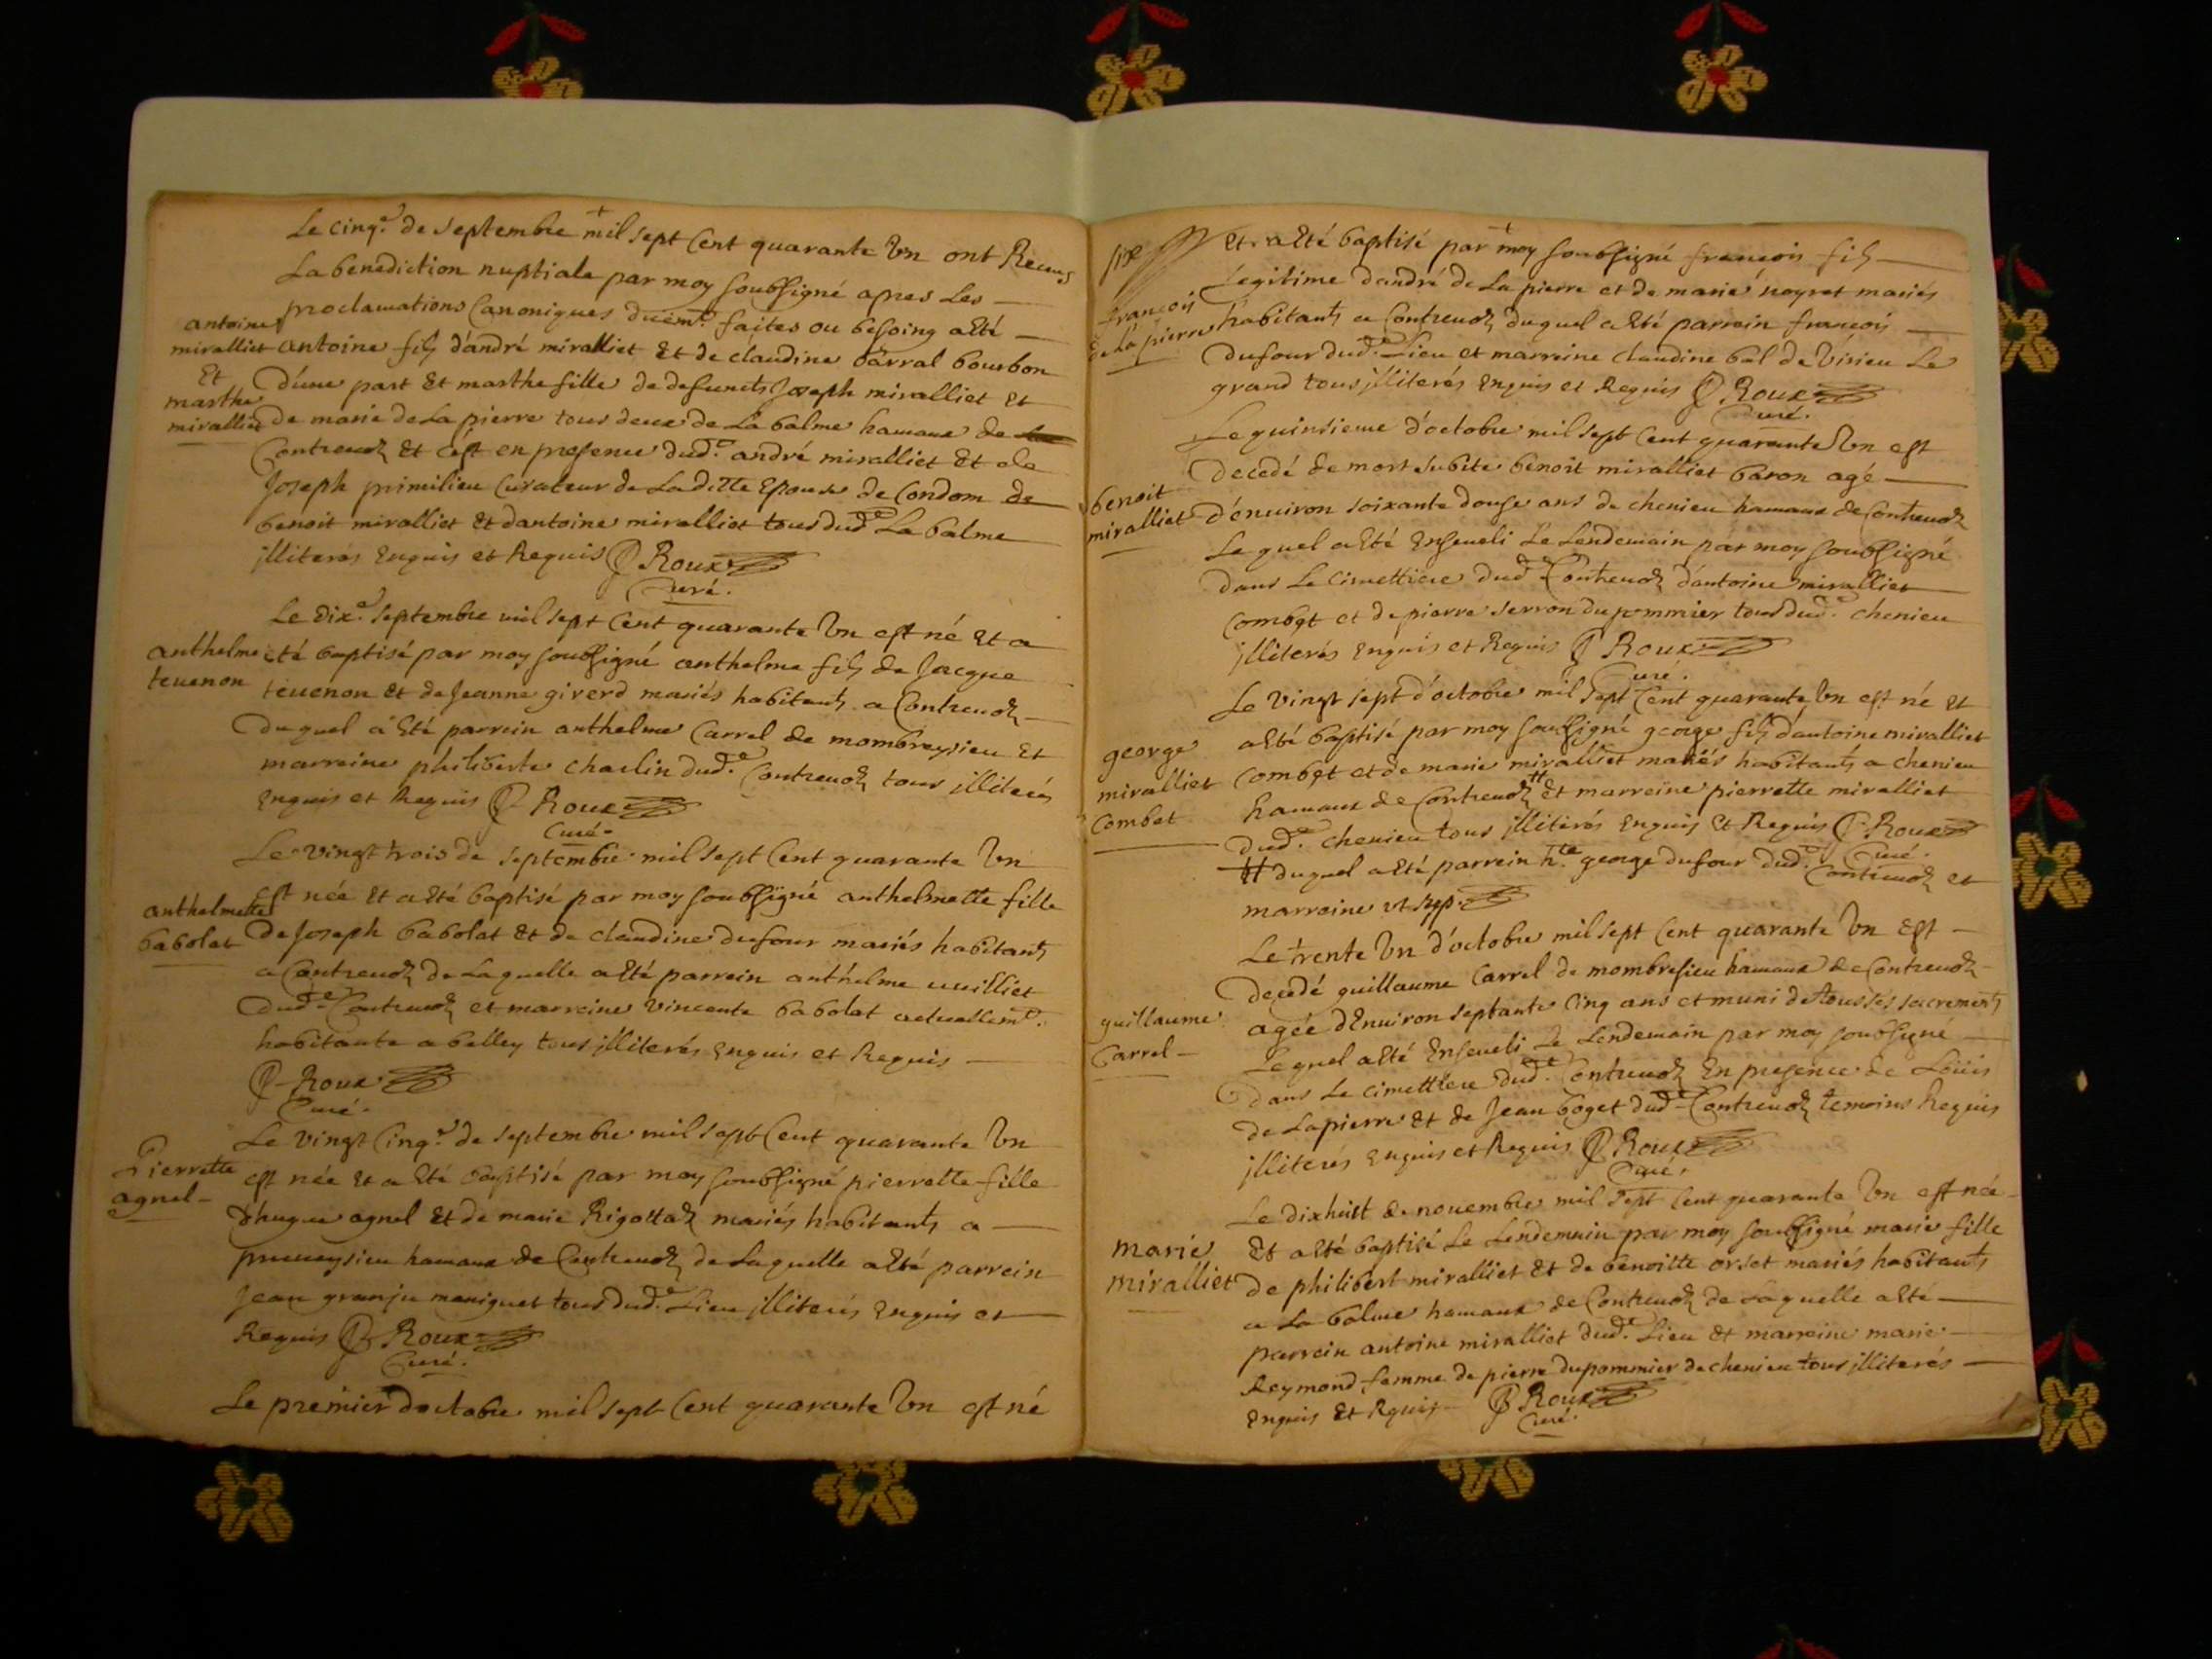 Le cinq.e de septembre mil sept Cent quarante Un ont Receus
La benediction nuptiale par moy soubsigné apres Les
proclamations Canoniques duëm.t faites ou besoing a Eté
antoine
miralliet
Et
marthe
miralliet
antoine fils d'andré miralliet Et de claudine barral bourbon
d'une part Et marthe fille de defuncts Joseph miralliet Et
de marie de La pierre tous deux de La balme hamaux de
Contreuoz Et c'est en presence dud.e andré miralliet Et de
Joseph primilieu Curateur de La ditte Epouse de Condom de
benoit miralliet Et dantoine miralliet tous dud.e La balme
illiterés Enquis et Requis P Roux
Curé.
Le dix.e septembre mil sept Cent quarante Un est né Et a
anthelme
teuenon
été baptisé par moy soubsigné anthelme fils de Jacque
teuenon Et de Jeanne girerd mariés habitants a Contreuoz
du quel a Eté parrein anthelme Carrel de mombreysieu Et
marreine philiberte charlin dud.e Contreuoz tous illiterés
Enquis et Requis P Roux
Curé.
Le vingt trois de septembre mil sept Cent quarante Un
anthelmette
babolat
Est née Et a Eté baptisé par moy soubsigné anthelmette fille
de Joseph babolat Et de claudine dufour mariés habitants
a Contreuoz de Laquelle a Eté parrein anthelme uuilliet
dud.e Contreuoz et marreine Vincente babolat actuellem.t
habitante a belley tous illiterés Enquis et Requis
P Roux
Curé.
Le vingt Cinq.e de septembre mil sept Cent quarante Un
Pierrette
agnel
est née Et a Eté baptisé par moy soubsigné pierrette fille
d'hugue agnel Et de marie Rigottaz mariés habitants a
preueysieu hamaux de Contreuoz de Laquelle a Eté parrein
Jean granju maniguet tous dud.e Lieu illiterés Enquis et
Requis P Roux
Curé.
Le premier d'octobre mil sept Cent quarante Un est né
six
Et a Eté baptisé par moy soubsigné françois fils
françois
de La pierre
Legitime d'andré de La pierre et de marie noyret mariés
habitants a Contreuoz duquel a Eté parrein françois
dufour dud.e Lieu et marreine claudine bal de Virieu Le
grand tous illiterés Enquis et Requis P Roux
Curé.
Le quinsieme d'octobre mil sept Cent quarante Un est
benoit
miralliet
decedé de mort subite benoit miralliet baron agé
d'enuiron soixante douse ans de chenieu hamaux de Contreuoz
Le quel a Eté Enseueli Le Lendemain par moy soubsigné
dans Le cimettiere dud.e Contreuoz d'antoine miralliet
combet et de pierre serron dupommier tous dud.e chenieu
illiterés Enquis et Requis P Roux
Curé.
Le vingt sept d'octobre mil sept Cent quarante Un est né Et
george
miralliet
combet
a Eté baptisé par moy soubsigné george fils d'antoine miralliet
combet et de marie miralliet mariés habitants a chenieu
hamaux de Contreuoz # Et marreine pierrette miralliet
dud.e chenieu tous illiterés Enquis Et Requis P Roux
Curé.
# duquel a Eté parrein h.te george dufour dud.e Contreuoz et
marreine ut sup.
Le trente Un d'octobre mil sept Cent quarante Un Est
guillaume
Carrel
decedé guillaume Carrel de mombresieu hamaux de Contreuoz
agée d'Enuiron septante Cinq ans et muni de tous ses sacrements
Lequel a Eté Enseueli Le Lendemain par moy soubsigné
dans Le cimettiere dud.e Contreuoz En presence de Loüis
de Lapierre Et de Jean boget dud.e Contreuoz temoins Requis
illiterés Enquis et Requis P Roux
Curé.
Le dixhuit de nouembre mil sept Cent quarante Un est née
marie
miralliet
Et a Eté baptisé Le Lendemain par moy soubsigné marie fille
de philibert miralliet Et de benoitte orset mariés habitants
a La balme hamaux de Contreuoz de Laquelle a Eté
parrein antoine miralliet dud.e Lieu Et marreine marie
Reymond femme de pierre dupommier de chenieu tous illiterés
Enquis Et Rquis P Roux
Curé.